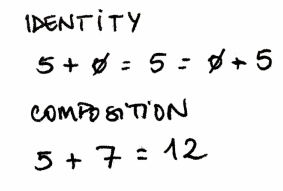 IDENTITY
5 + ∅ = 5 = ∅ + 5
COMPOSITION
5 + 7 = 12